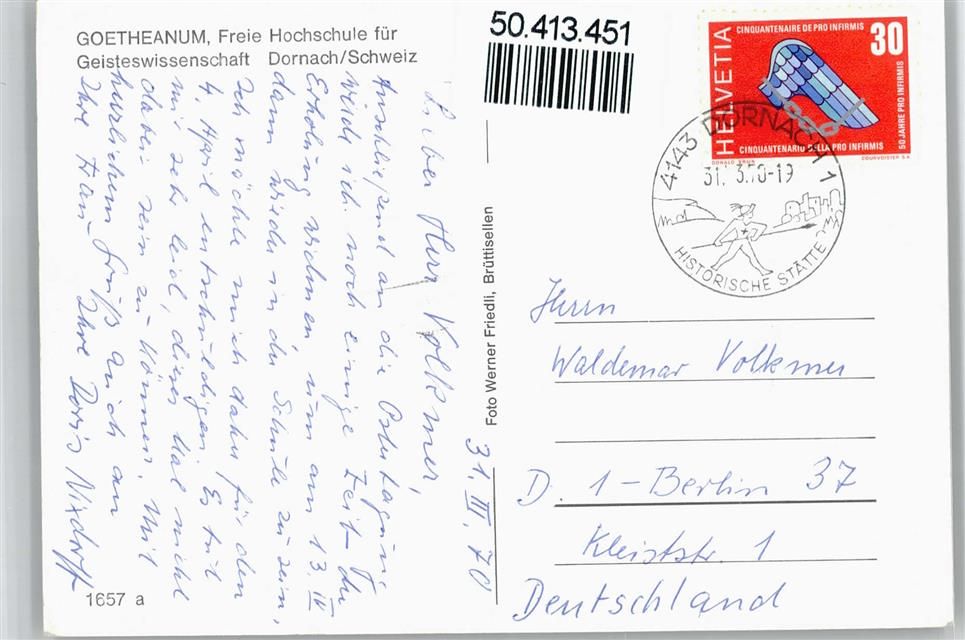 GOETHEANUM, Freie Hochschule für
Geisteswissenschaft Dornach/Schweiz
50.413.451
CINQUANTENAIRE DE PRO INFIRMIS
30
HELVETIA
50 JAHRE PRO INFIRMIS
CINQUANTENARIO DELLA PRO INFIRMIS
DONALD BRUN
COURVOISIER S.A.
4143 DORNACH 1
31. 3.70-19
HISTORISCHE STÄTTE
31. III. 70
Lieber Herr Volkmer,
Anschließend an die Ostertagung
will ich noch einige Zeit der
Erholung widmen, um am 13. IV
dann wieder in der Schule zu sein.
Ich möchte mich daher für den
4. April entschuldigen. Es tut
mir sehr leid, dieses Mal nicht
dabei sein zu können. Mit
herzlichem Gruß auch an
Ihre Frau Ihre Doris Nixdorff
Foto Werner Friedli, Brüttisellen
Herrn
Waldemar Volkmer
D. 1-Berlin 37
Kleiststr. 1
Deutschland
1657 a